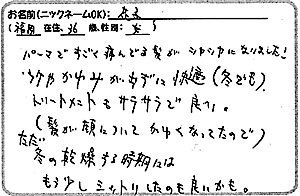 お名前(ニックネームOK): 
(福岡 在住, 36 歳、性別: 女 )
パーマですごく痛んでる髪がシャカシャカになりました!
かゆみがでずに快適(冬でも)
トリートメントもサラサラで良い。
(髪が顔についてかゆくなってたので)
ただ
冬の乾燥する時期には
もう少ししっとりしたのも良いかも。